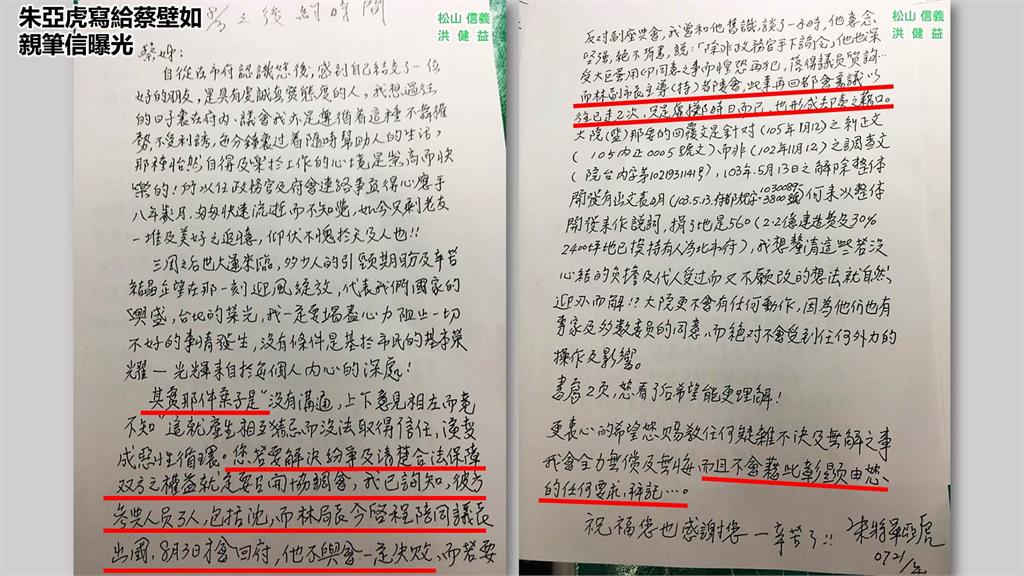 朱亞虎寫給蔡壁如
親筆信曝光
松山 信義
洪 健 益
蔡姊:
自從在市府認識您後,感到自己結交了一位
好的朋友,是具有虔誠負責態度的人,我想過往
的日子裏在府內、議會我亦是膺着這種不畏權
勢不受利誘,每分鐘裏過着隨時幫助人的生活,
那種怡然自得及樂於工作的心境是崇高而快
樂的!所以任政務官及府會連絡事宜得心應手
八年歲月,匆匆快速流逝而不知覺,如今只剩老友
一堆及美好之追憶,仰伏不愧於天及人也!!
三周之后世大運來臨,多少人的引頸期盼及辛苦
結晶企望在那一刻迎風綻放,代表我們國家的
興盛,台北的榮光,我一定要竭盡心力阻止一切
不好的事情發生,沒有條件是基於市民的基本榮
耀—光輝來自於每個人內心的深處!
其實那件案子是"沒有溝通,上下意見相左而竟
不知"這就產生相互猜忌而沒法取得信任,演變
成惡性循環。您若要解決紛爭及清楚合法保障
双方之權益就是要召開協調會,我已詢知,彼方
參與人員3人,包括沈,而林局長今啓程陪同議長
出國,8月3日才會回府,他不與會一定失敗,而若要
松山 信義
洪 健 益
反対副座與會,我曾和他舊識,談了一小時,他意念
堅强,絕不背書,說:「除非政務官手下諭令,他也深
受大巨蛋用印同意之事而惶恐再犯,落得議員質詢…
而林副市長主導(持)者陪會,此事再回都委會審議以
往已走2次,只是虛擲時日而已,也形成去函之藉口。
大院(監)那要的回覆文是針對(105年1月12)之糾正文
(105內正0005號文)、而非(102年11月12)之調查文
(院台內字第1021931141號),103年5月13日之解除整体
開發有函文表明(103.5.13.府都規字1030089-3800號)何来以整体
開發来作說詞,捐了地是560(2.2億建造費及30%
2400坪地已換持有人為北市府),我想釐清這些若沒
心結的負擔及代人受过而又不願改的想法就自然
迎刃而解!?大院更不會有任何動作,因為他们也有
專家及多數委員的同意,而絕对不會受到任何外力的
操作及影響。
書寫2页,您看了后希望能更理解!
更衷心的希望您賜教任何疑難不决及無解之事
我會全力無償及無悔而且不會藉此彰顯由您
的任何要求,拜託…。
祝福您也感謝您 一辛苦了!! 朱將軍亞虎